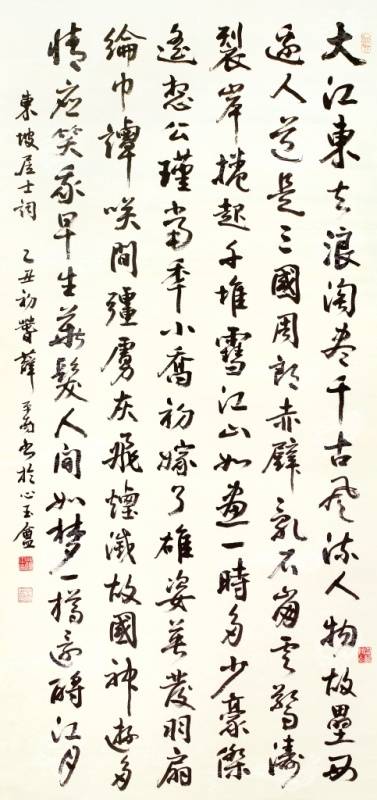 大江東去浪淘盡千古風流人物故壘西
邊人道是三國周郎赤壁亂石崩雲驚濤
裂岸捲起千堆雪江山如畫一時多少豪傑
遙想公瑾當秊小喬初嫁了雄姿英發羽扇
綸巾譚咲間彊虜灰飛煙滅故國神遊多
情應笑我早生華髮人間如夢一樽還酹江月
東坡居士詞 乙丑初 薛平南書於心玉盦